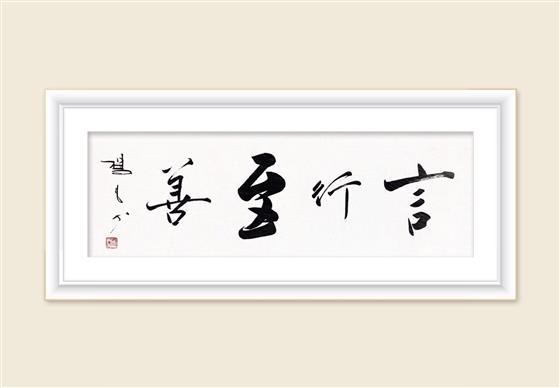 言行至善